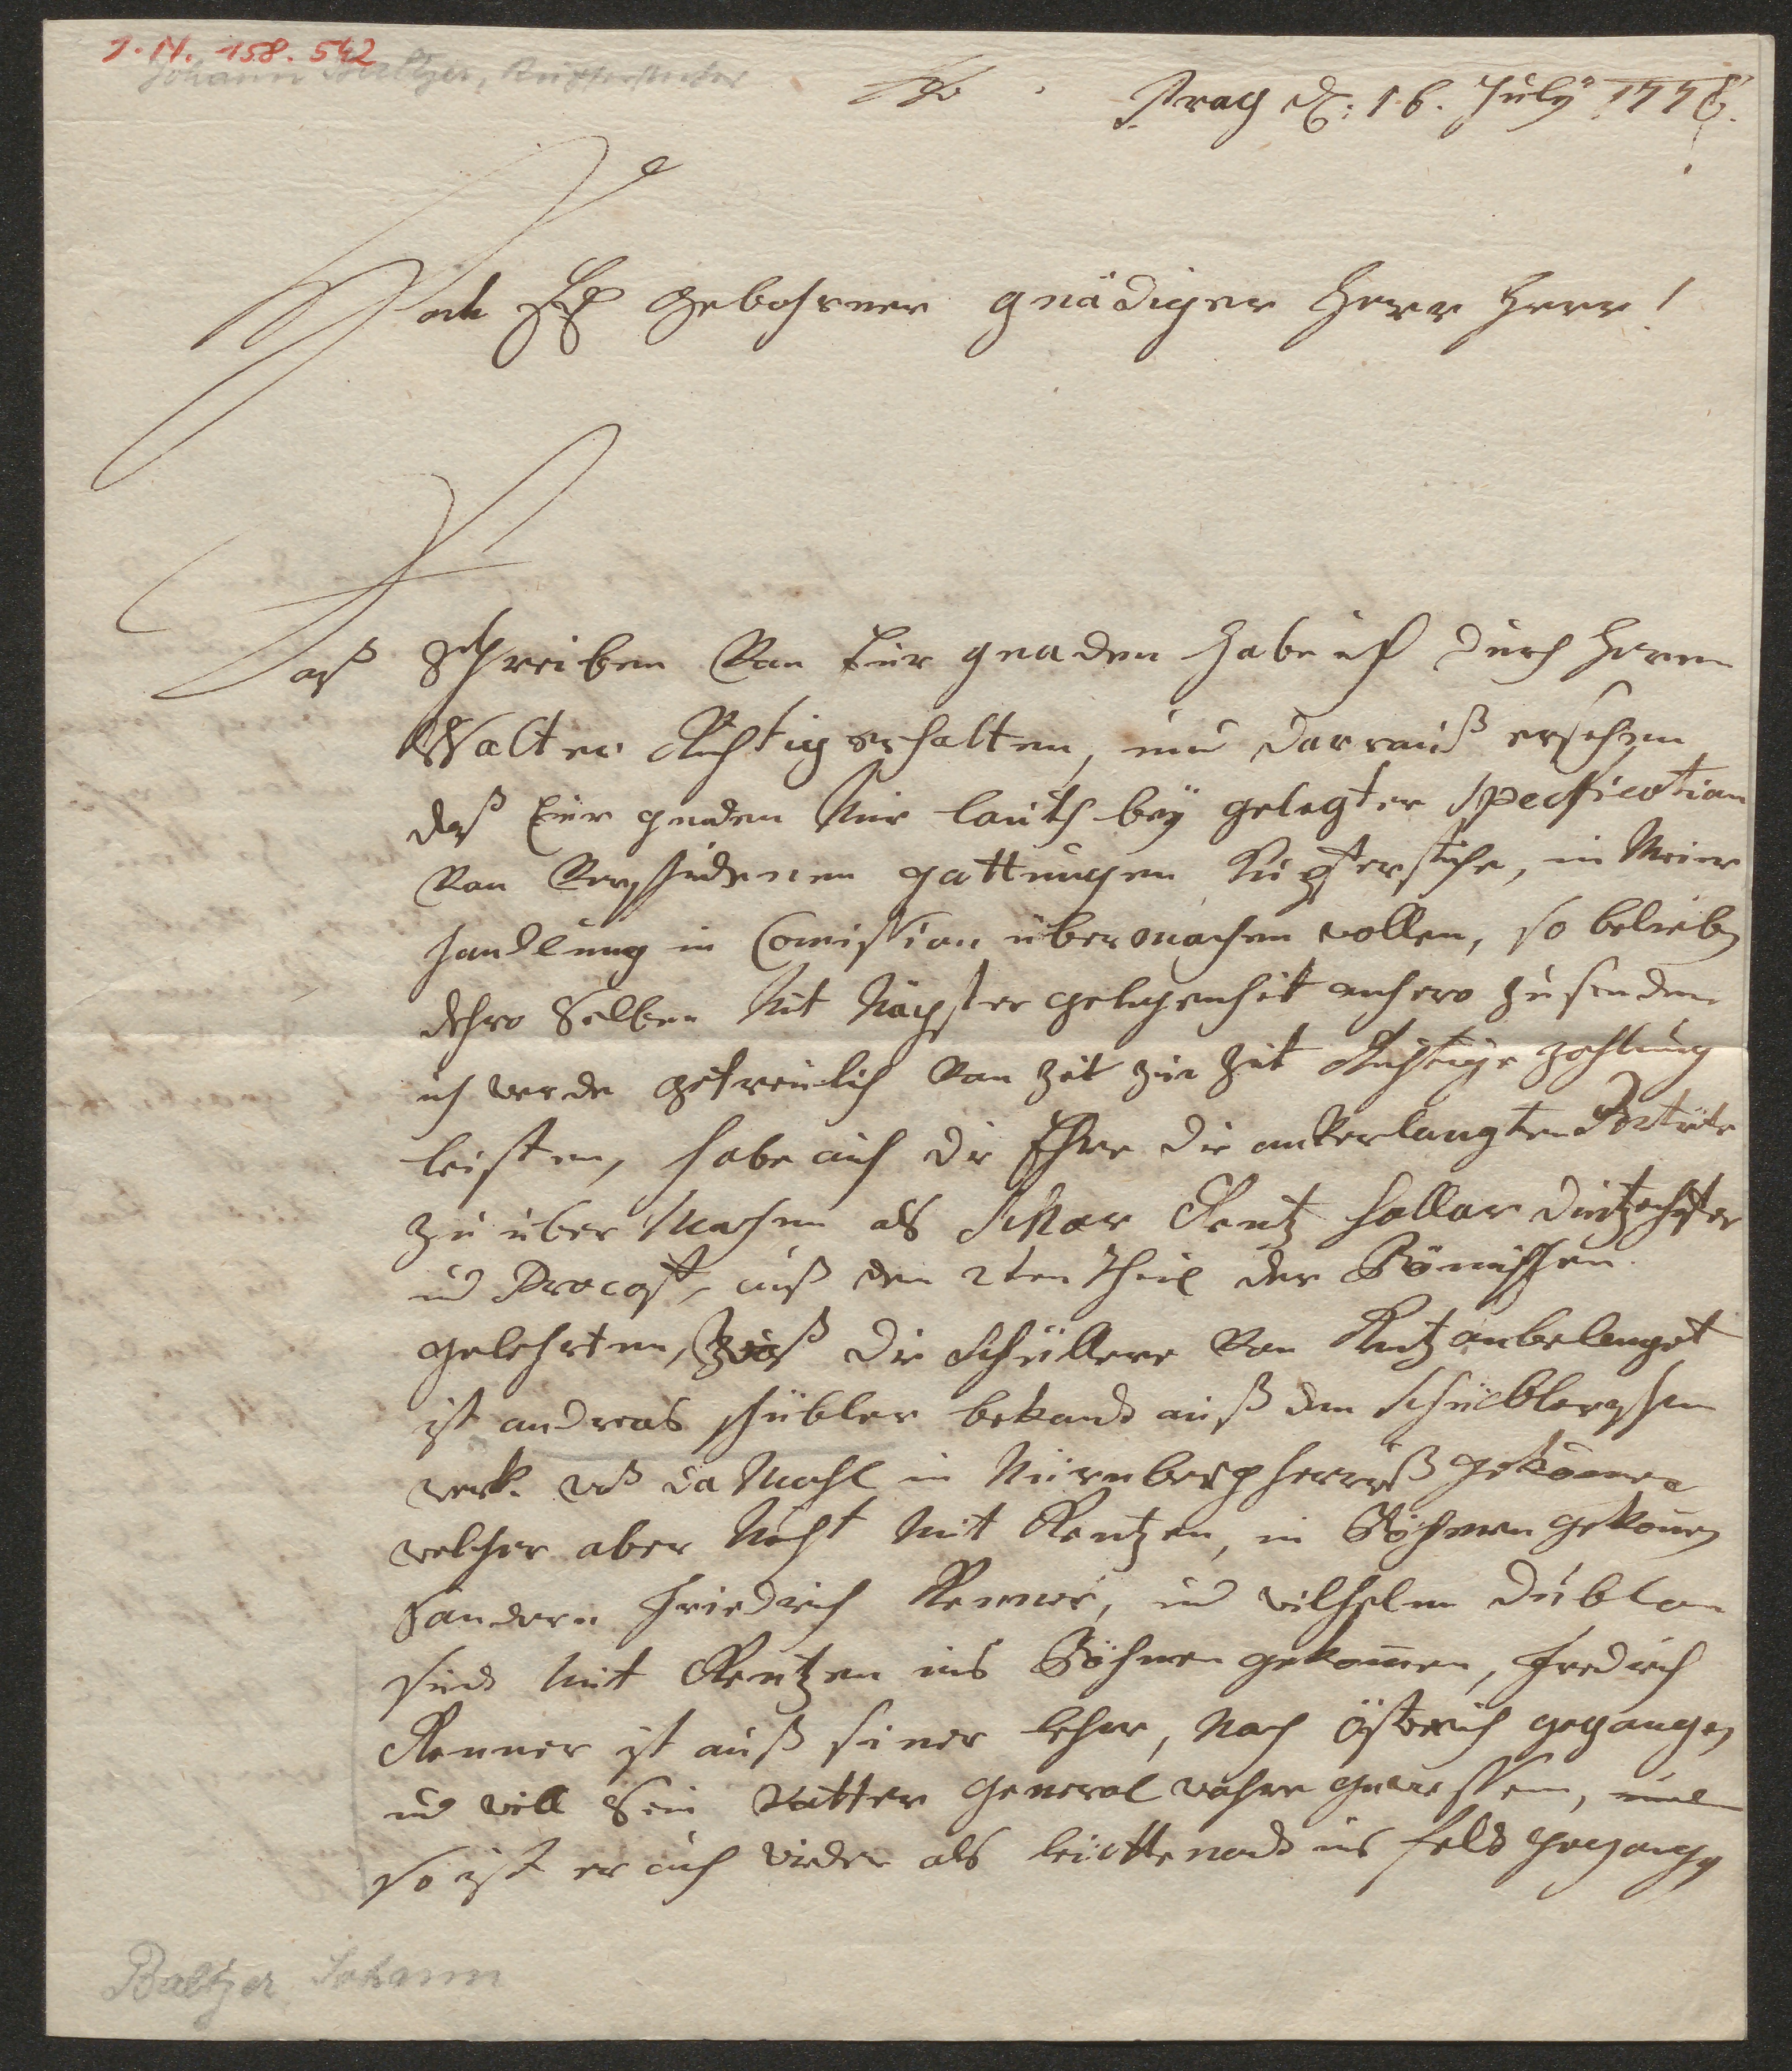 J. N. 158.542
Johann Baltzer, Kupferstecher
Prag d: 16. July 1778.
Hoch Edl Gebohrner gnädiger Herr Herr!
Daß Schreiben Von Euer gnaden habe ich durch Herrn
Walter Richtig erhalten, und darrauß ersehen
daß Euer gnaden Mir lauth bey gelegter Specification
Von Verschidenen gattungen Kupferstiche, in Meine
Handlung in Comission übermachen wollen, so belieben
dehro Selben Mit Nägster gelegenheit anhero zu senden
ich werde getreulich Von Zeit zu Zeit Richtige Zahlung
leisten, habe auch die Ehre die anverlangten Porträte
zu über Machen als Rentz Hollar
und auß den 2ten Theil der Bömischen
gelehrten, Waß die Schüllere Von Rentz anbelanget
ist andreas schübler bekand auß den Schüblerschen
werk. waß da Mahl in Nürnberg herrauß gekommen
welcher aber Nicht Mit Rentzen, in Böhmen gekomen
Sondern Friedrich Renner, und wilhelm dublon
sind Mit Rentzen ins Böhmen gekommen, Fredrich
Renner ist auß seiner lehre, Nach Östreich gegangen
und weill Sein Vatter General wahre gewessen,
so ist er auch wieder als leuttenand ins feld gegangen
Baltzer Johann